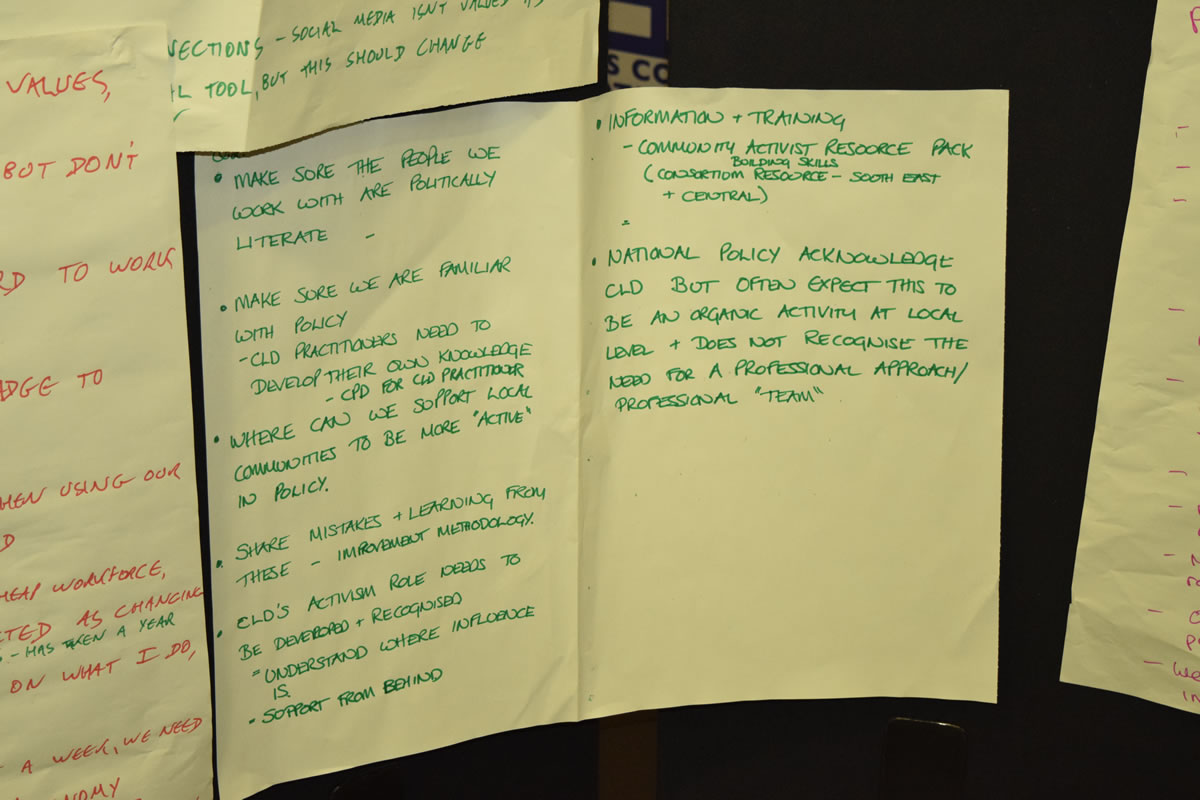 VALUES,
BUT DON'T
TO WORK
TO
USING OUR
WORKFORCE,
AS CHANGING
- HAS TAKEN A YEAR
ON WHAT I DO,
A WEEK, WE NEED
- SOCIAL MEDIA ISN'T VALUES
TOOL, BUT THIS SHOULD CHANGE
• MAKE SURE THE PEOPLE WE
WORK WITH ARE POLITICALLY
LITERATE -
• MAKE SURE WE ARE FAMILIAR
WITH POLICY
- CLD PRACTITIONERS NEED TO
DEVELOP THEIR OWN KNOWLEDGE
- CPD FOR CLD PRACTITIONER
• WHERE CAN WE SUPPORT LOCAL
COMMUNITIES TO BE MORE "ACTIVE"
IN POLICY.
• SHARE MISTAKES + LEARNING FROM
THESE - IMPROVEMENT METHODOLOGY.
• CLD'S ACTIVISM ROLE NEEDS TO
BE DEVELOPED + RECOGNISED
= UNDERSTAND WHERE INFLUENCE
IS.
- SUPPORT FROM BEHIND
• INFORMATION + TRAINING
- COMMUNITY ACTIVIST RESOURCE PACK
BUILDING SKILLS
(CONSORTIUM RESOURCE - SOUTH EAST
+ CENTRAL)
=
• NATIONAL POLICY ACKNOWLEDGE
CLD BUT OFTEN EXPECT THIS TO
BE AN ORGANIC ACTIVITY AT LOCAL
LEVEL + DOES NOT RECOGNISE THE
NEED FOR A PROFESSIONAL APPROACH/
PROFESSIONAL "TEAM"